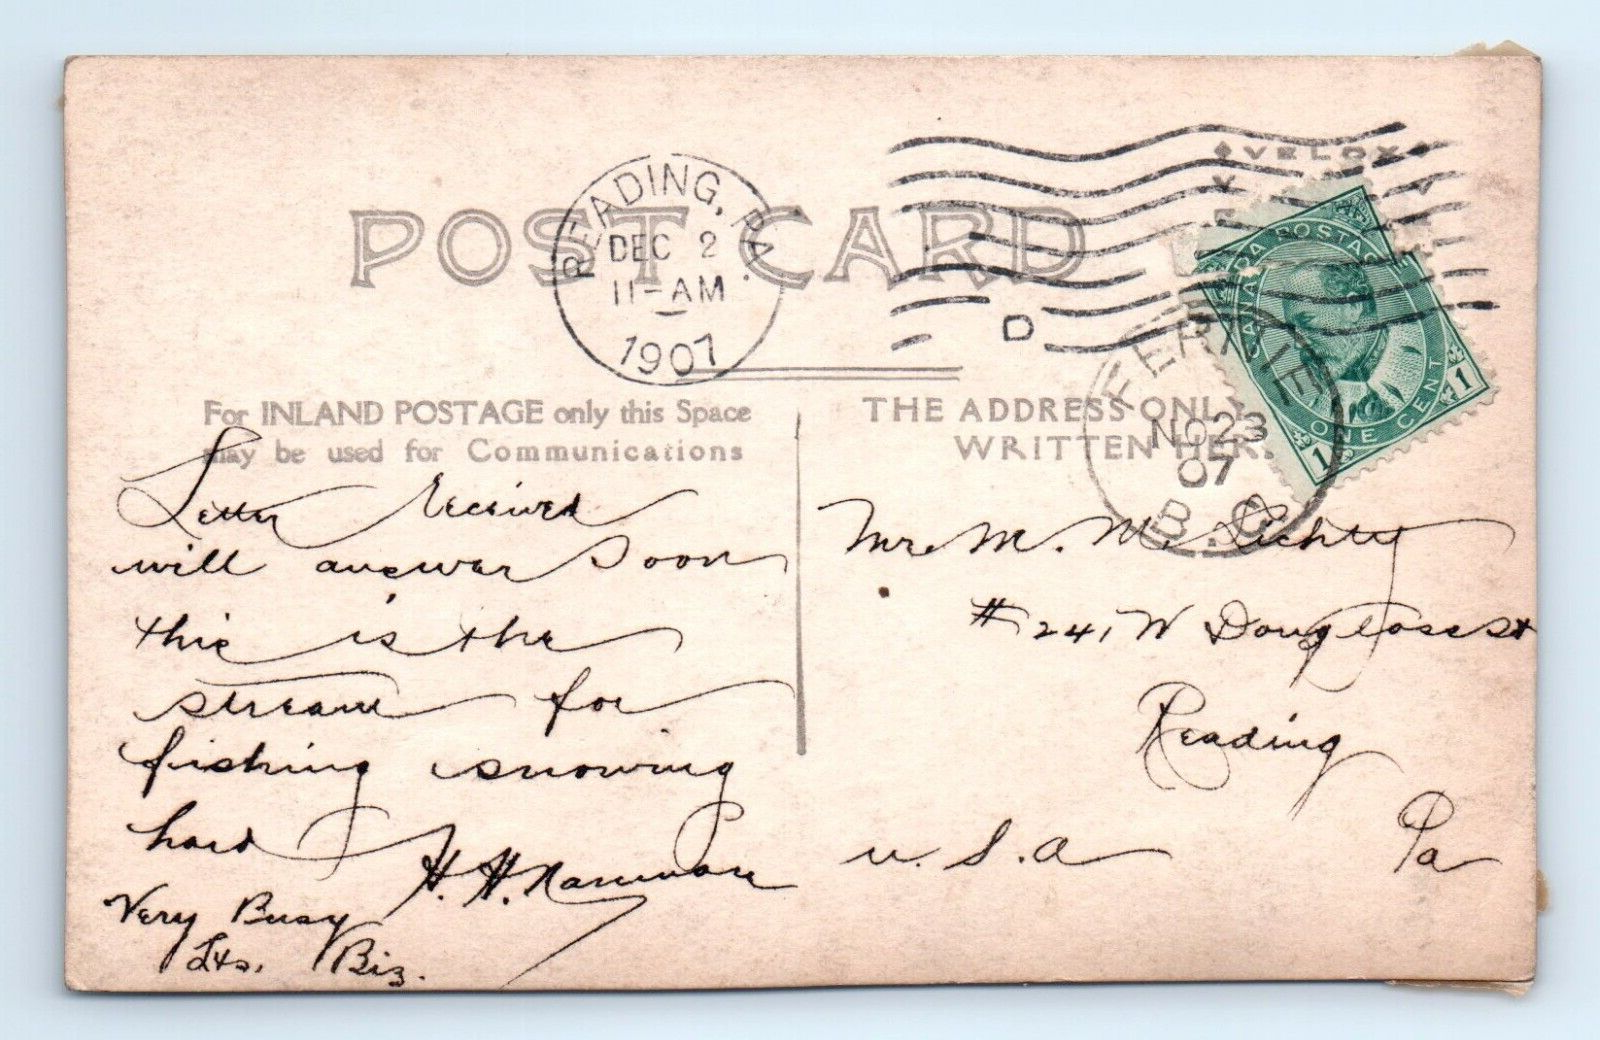 POST CARD
READING, PA.
DEC 2
11-AM
1907
D
VELOX
CANADA POSTAGE
ONE CENT
1 1
FERNIE
NO 23
07
B.C.
For INLAND POSTAGE only this Space
may be used for Communications
THE ADDRESS ONLY
WRITTEN HER
Letter received
will answer soon
this is the
stream for
fishing snowing
hard
H. H.
Very Busy
Lts. Biz.
Mr. M. M. Lichty
# 241 W Douglass St
Reading
Pa
U.S.A